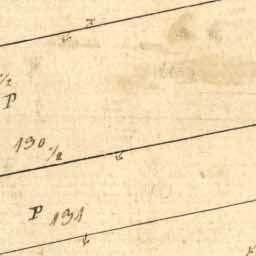 P
130 1/2
P 131